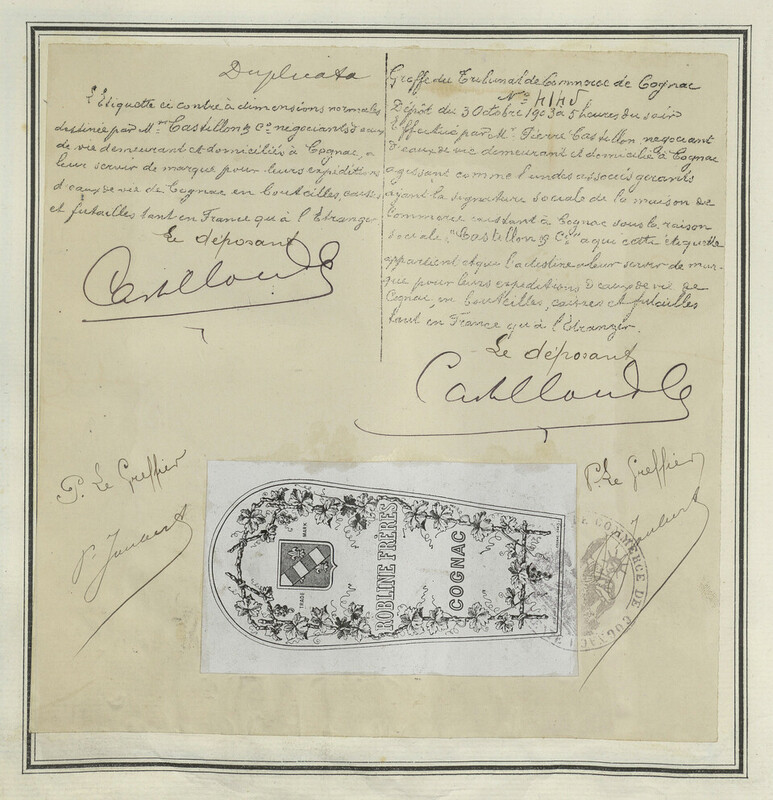 Duplicata
L'Etiquette ci contre à dimensions normales
destinée par M.rs Castillon & Co négociants d'eaux
de vie demeurant et domiciliés à Cognac, a
leur servir de marque pour leurs expéditions
d'eaux de vie de Cognac en bouteilles, caisses
et futailles tant en France qu'à l'Etranger
Le déposant
Castillon & Co
Greffe du Tribunal de Commerce de Cognac
No 4145
Dépôt du 3 Octobre 1903 à 5 heures du soir
Effectué par Mr. Pierre Castillon, négociant
d'eaux de vie demeurant et domicilié à Cognac
agissant comme l'un des associés gérants
ayant la signature sociale de la maison de
Commerce existant à Cognac sous la raison
sociale, "Castillon & Co" a qui cette étiquette
appartient et qui l'a destine a leur servir de mar-
que pour leurs expéditions d'eaux de vie de
Cognac, en bouteilles, caisses et futailles
tant en France qu'à l'Etranger.
Le déposant
Castillon & Co
P. Le Greffier
P. Le Greffier
TRADE MARK
ROBLINE FRÈRES
COGNAC
DE COMMERCE DE COGNAC